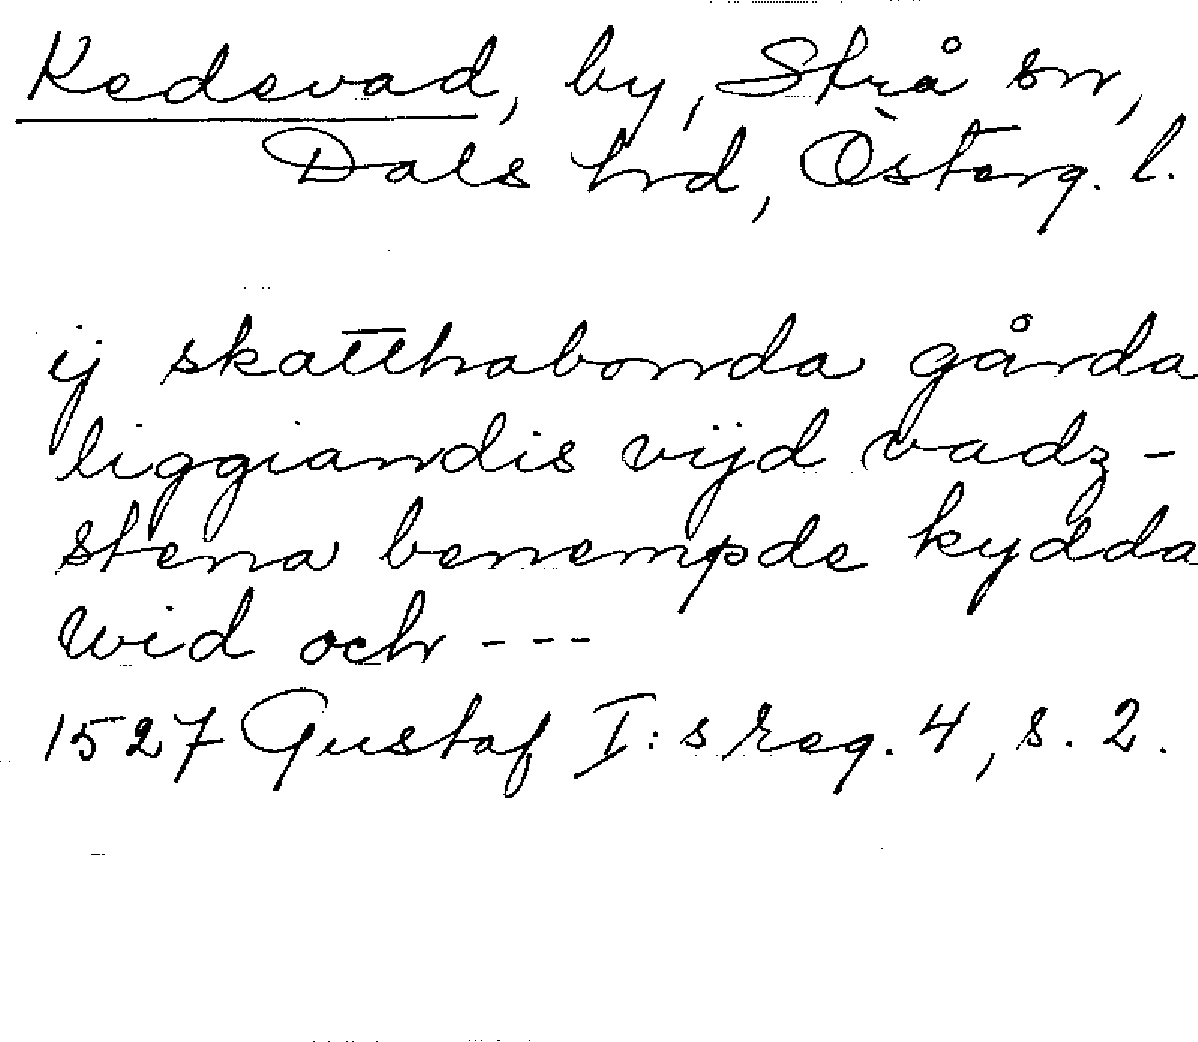 Kedevad, by, Strå sn,
Dals hrd, Österg. l.
ij skatthabonda gårda
liggiandis vijd vadz-
stena benempde kydda
wid och ---
1527 Gustaf I:s reg. 4, s. 2.